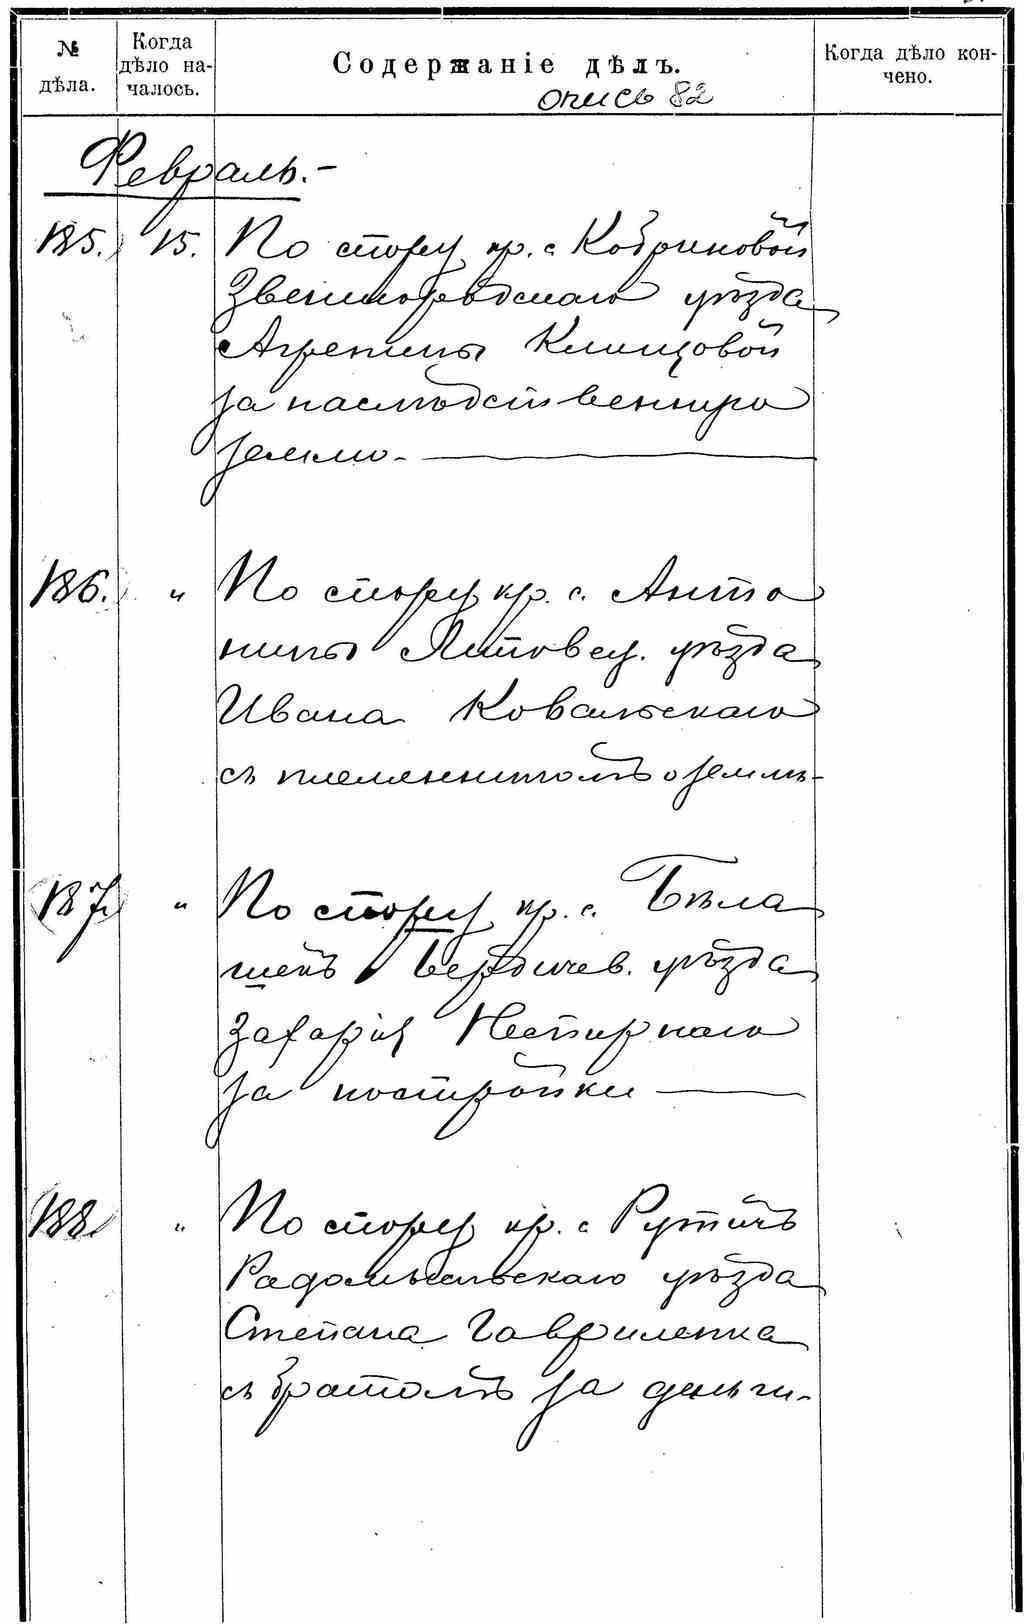 № дѣла.
Когда дѣло на-
чалось.
Содержаніе дѣлъ.
Когда дѣло кон-
чено.
опись 82
Февраль.-
185. 15. По спору кр. с. Кобриновой
Звенигородскаго уѣзда
Агрепины Климцовой
за наслѣдственную
землю.
186. " По спору кр. с. Анто
нины Липовец. уѣзда
Ивана Ковальскаго
съ племенникомъ о землѣ-
187 " По спору кр. с. Бѣла
шекъ Бердичев. уѣзда
Захарія Нестирнаго
за постройки
188 " По спору кр. с.
Радомысльскаго уѣзда
Степана Гавриленка
съ братомъ за деньги-